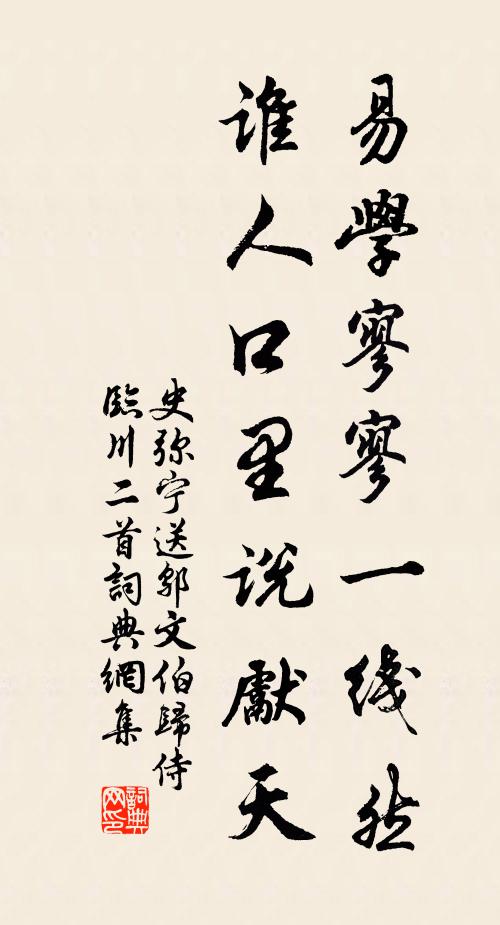 易學寥寥一綫然
誰人口里説獻天
史弥宁送鄒文伯歸侍
臨川二首詞典網集
詞典網印